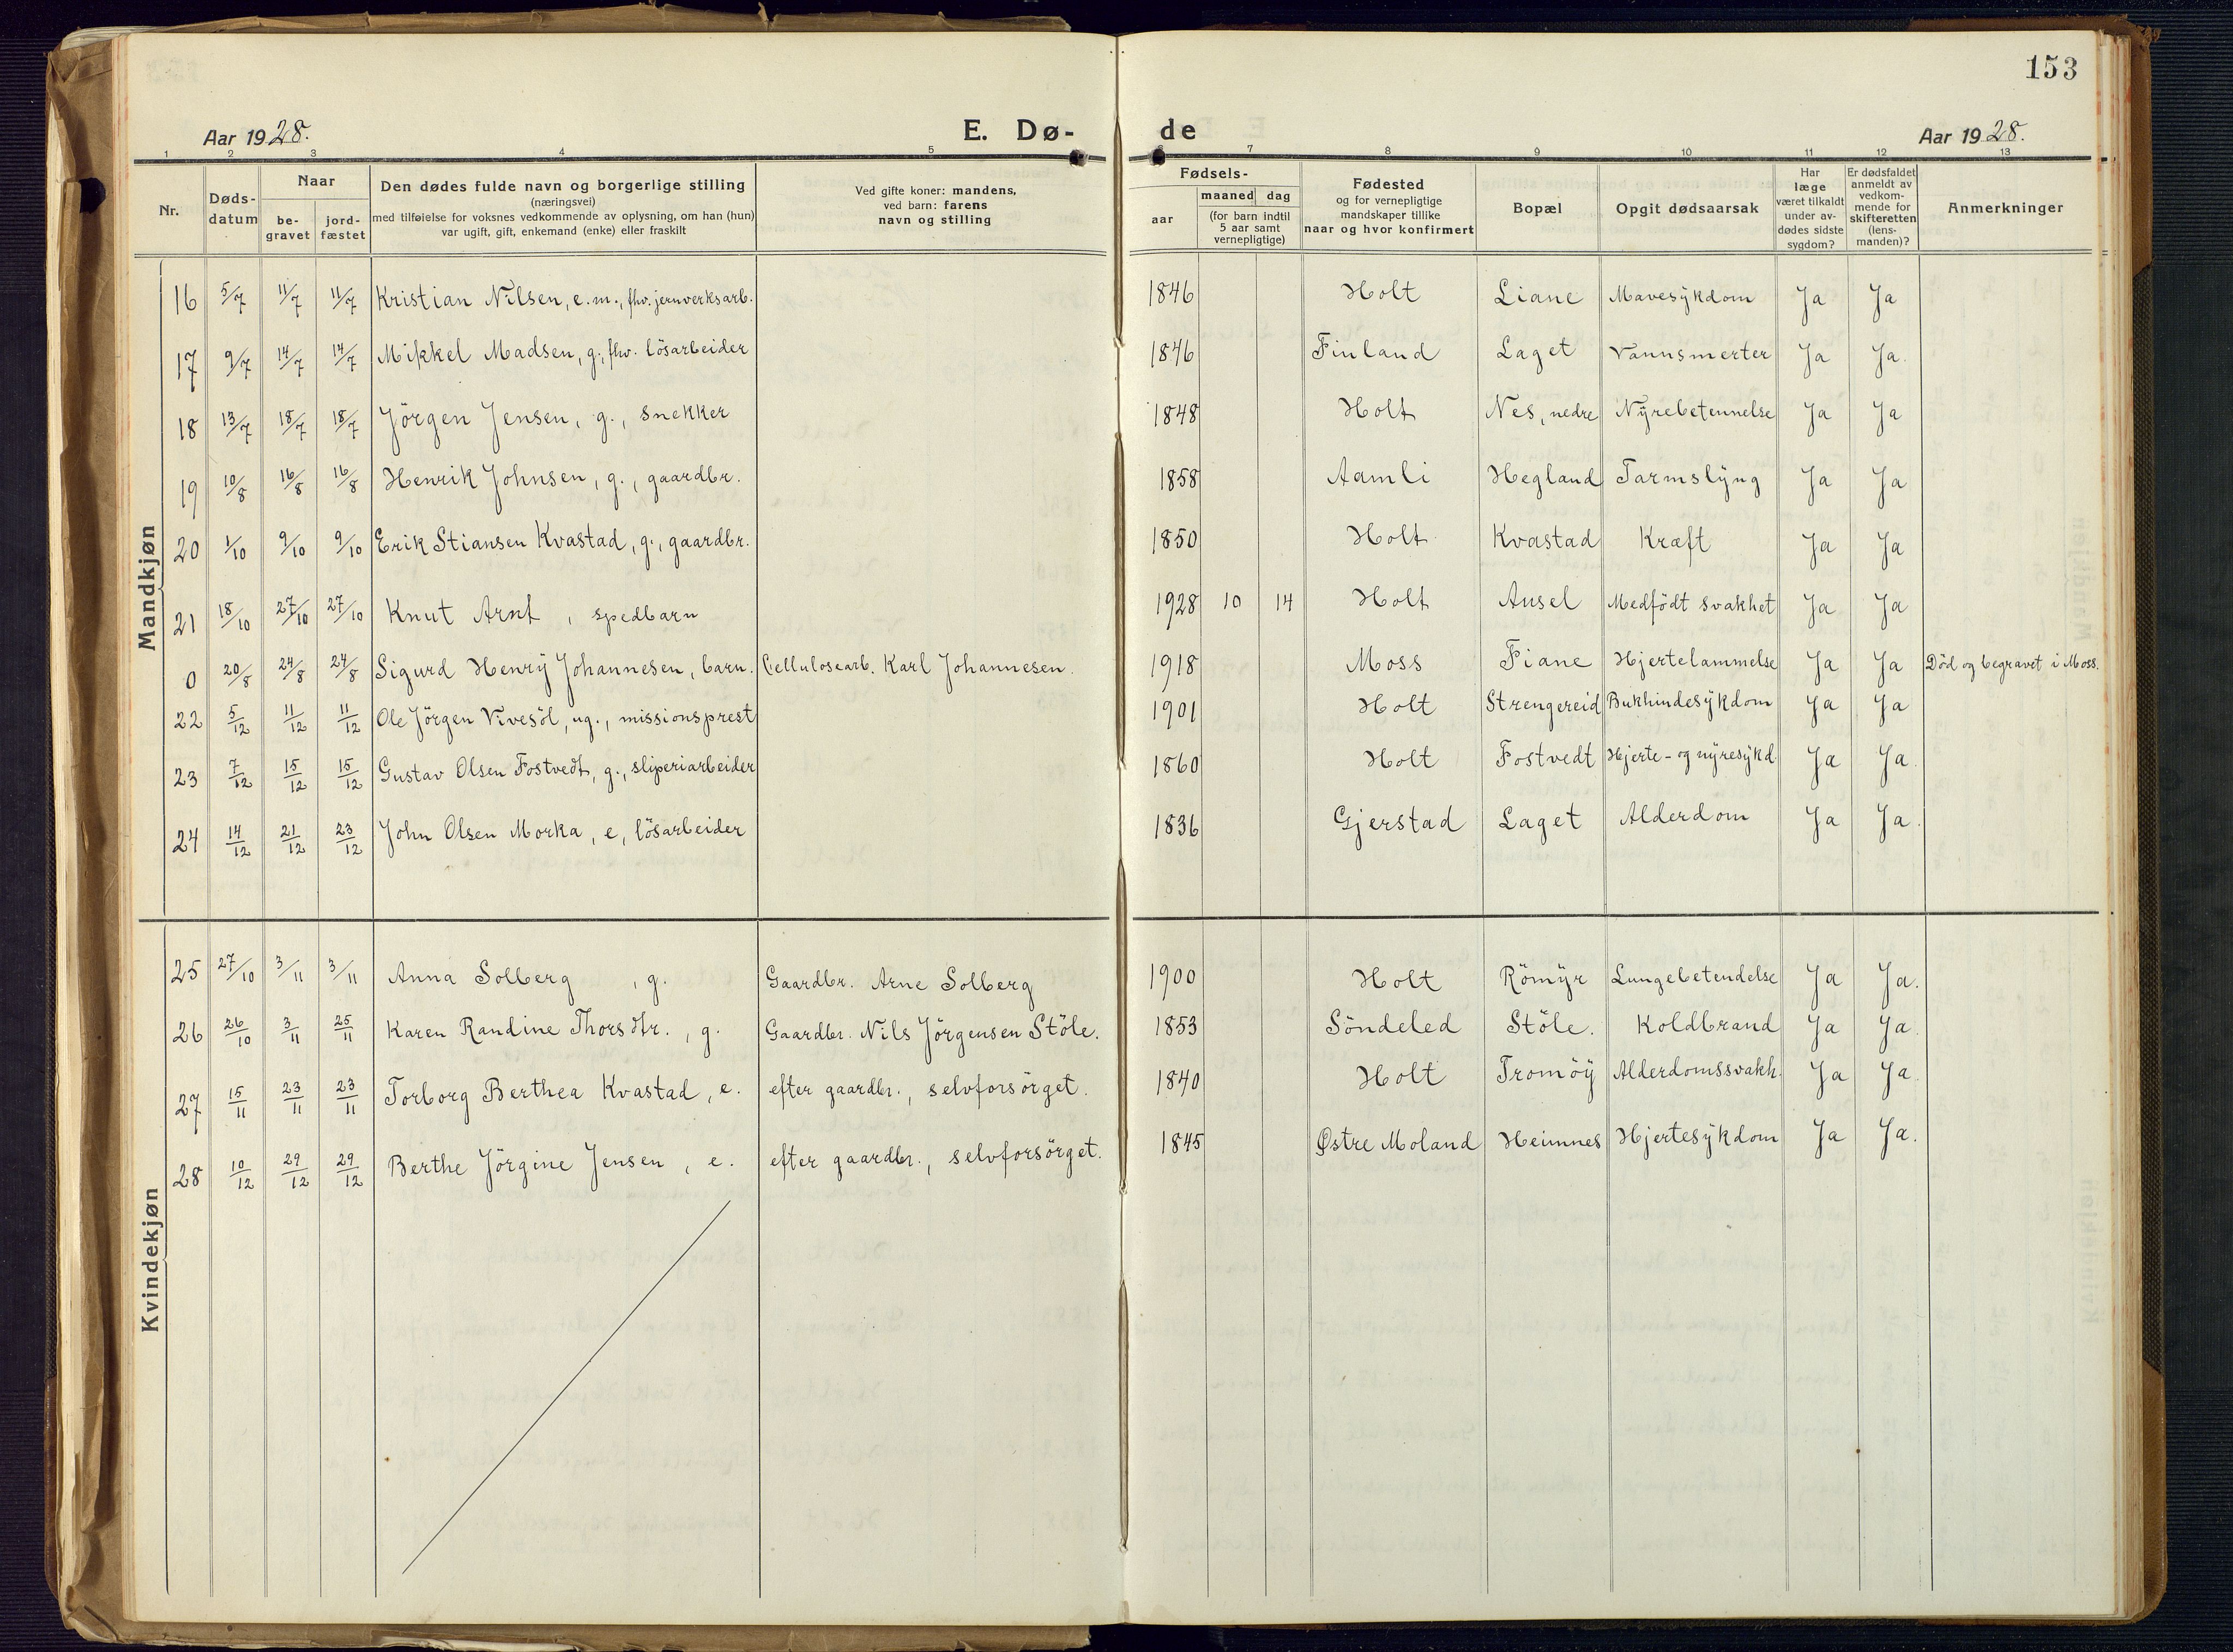 153
Aar 1928. E. Dø- de Aar 1928.
1 2 3 4 5 6 7 8 9 10 11 12 13
Nr. Døds-datum Naar be-gravet jord-fæstet Den dødes fulde navn og borgerlige stilling (næringsvei) med tilføielse for voksnes vedkommende av oplysning, om han (hun) var ugift, gift, enkemand (enke) eller fraskilt Ved gifte koner: mandens, ved barn: farens navn og stilling Fødsels- aar maaned dag (for barn indtil 5 aar samt vernepligtige) Fødested og for vernepligtige mandskaper tillike naar og hvor konfirmert Bopæl Opgit dødsaarsak Har læge været tilkaldt under av-dødes sidste sygdom? Er dødsfaldet anmeldt av vedkom-mende for skifteretten (lens-manden)? Anmerkninger
Mandkjøn
16 5/7 11/7 11/7 Kristian Nilsen, e.m., fhv. jernverksarb. 1846 Holt Liane Mavesykdom Ja Ja
17 9/7 14/7 14/7 Mikkel Madsen, g., fhv. lösarbeider 1846 Finland Laget Vannsmerter Ja Ja.
18 13/7 18/7 18/7 Jörgen Jensen, g., snekker 1848 Holt Nes, nedre Nyrebetennelse Ja Ja
19 10/8 16/8 16/8 Henrik Johnsen, g., gaardbr. 1858 Aamli Hegland Tarmslyng Ja Ja
20 1/10 9/10 9/10 Erik Stiansen Kvastad, g., gaardbr. 1850 Holt Kvastad Kræft Ja Ja
21 18/10 27/10 27/10 Knut Arnt , spedbarn 1928 10 14 Holt Ausel Medfödt svakhet Ja Ja
0 20/8 24/8 24/8 Sigurd Henry Johannesen, barn. Cellulosearb. Karl Johannesen. 1918 Moss Fiane Hjertelammelse Ja Ja Död og begravet i Moss.
22 5/12 11/12 11/12 Ole Jörgen Vivesöl, ug., missionsprest 1901 Holt Strengereid Bukhindesykdom Ja Ja
23 7/12 15/12 15/12 Gustav Olsen Fostvedt, g., sliperiarbeider 1860 Holt Fostvedt Hjerte- og nyresykd Ja Ja.
24 14/12 21/12 23/12 John Olsen Morka, e, lösarbeider 1836 Gjerstad Laget Alderdom Ja Ja.
Kvindekjøn
25 27/10 3/11 3/11 Anna Solberg , g. Gaardbr. Arne Solberg 1900 Holt Römyr Lungebetendelse Ja Ja.
26 26/10 3/11 25/11 Karen Randine Thorsdtr., g. Gaardbr. Nils Jörgensen Stöle. 1853 Söndeled Stöle. Koldbrand Ja Ja.
27 15/11 23/11 23/11 Torborg Berthea Kvastad, e. efter gaardbr., selvforsörget. 1840 Holt Tromöy Alderdomssvakh. Ja Ja.
28 10/12 29/12 29/12 Berthe Jörgine Jensen, e. efter gaardbr., selvforsörget. 1845 Østre Moland Heimnes Hjertesykdom Ja Ja.